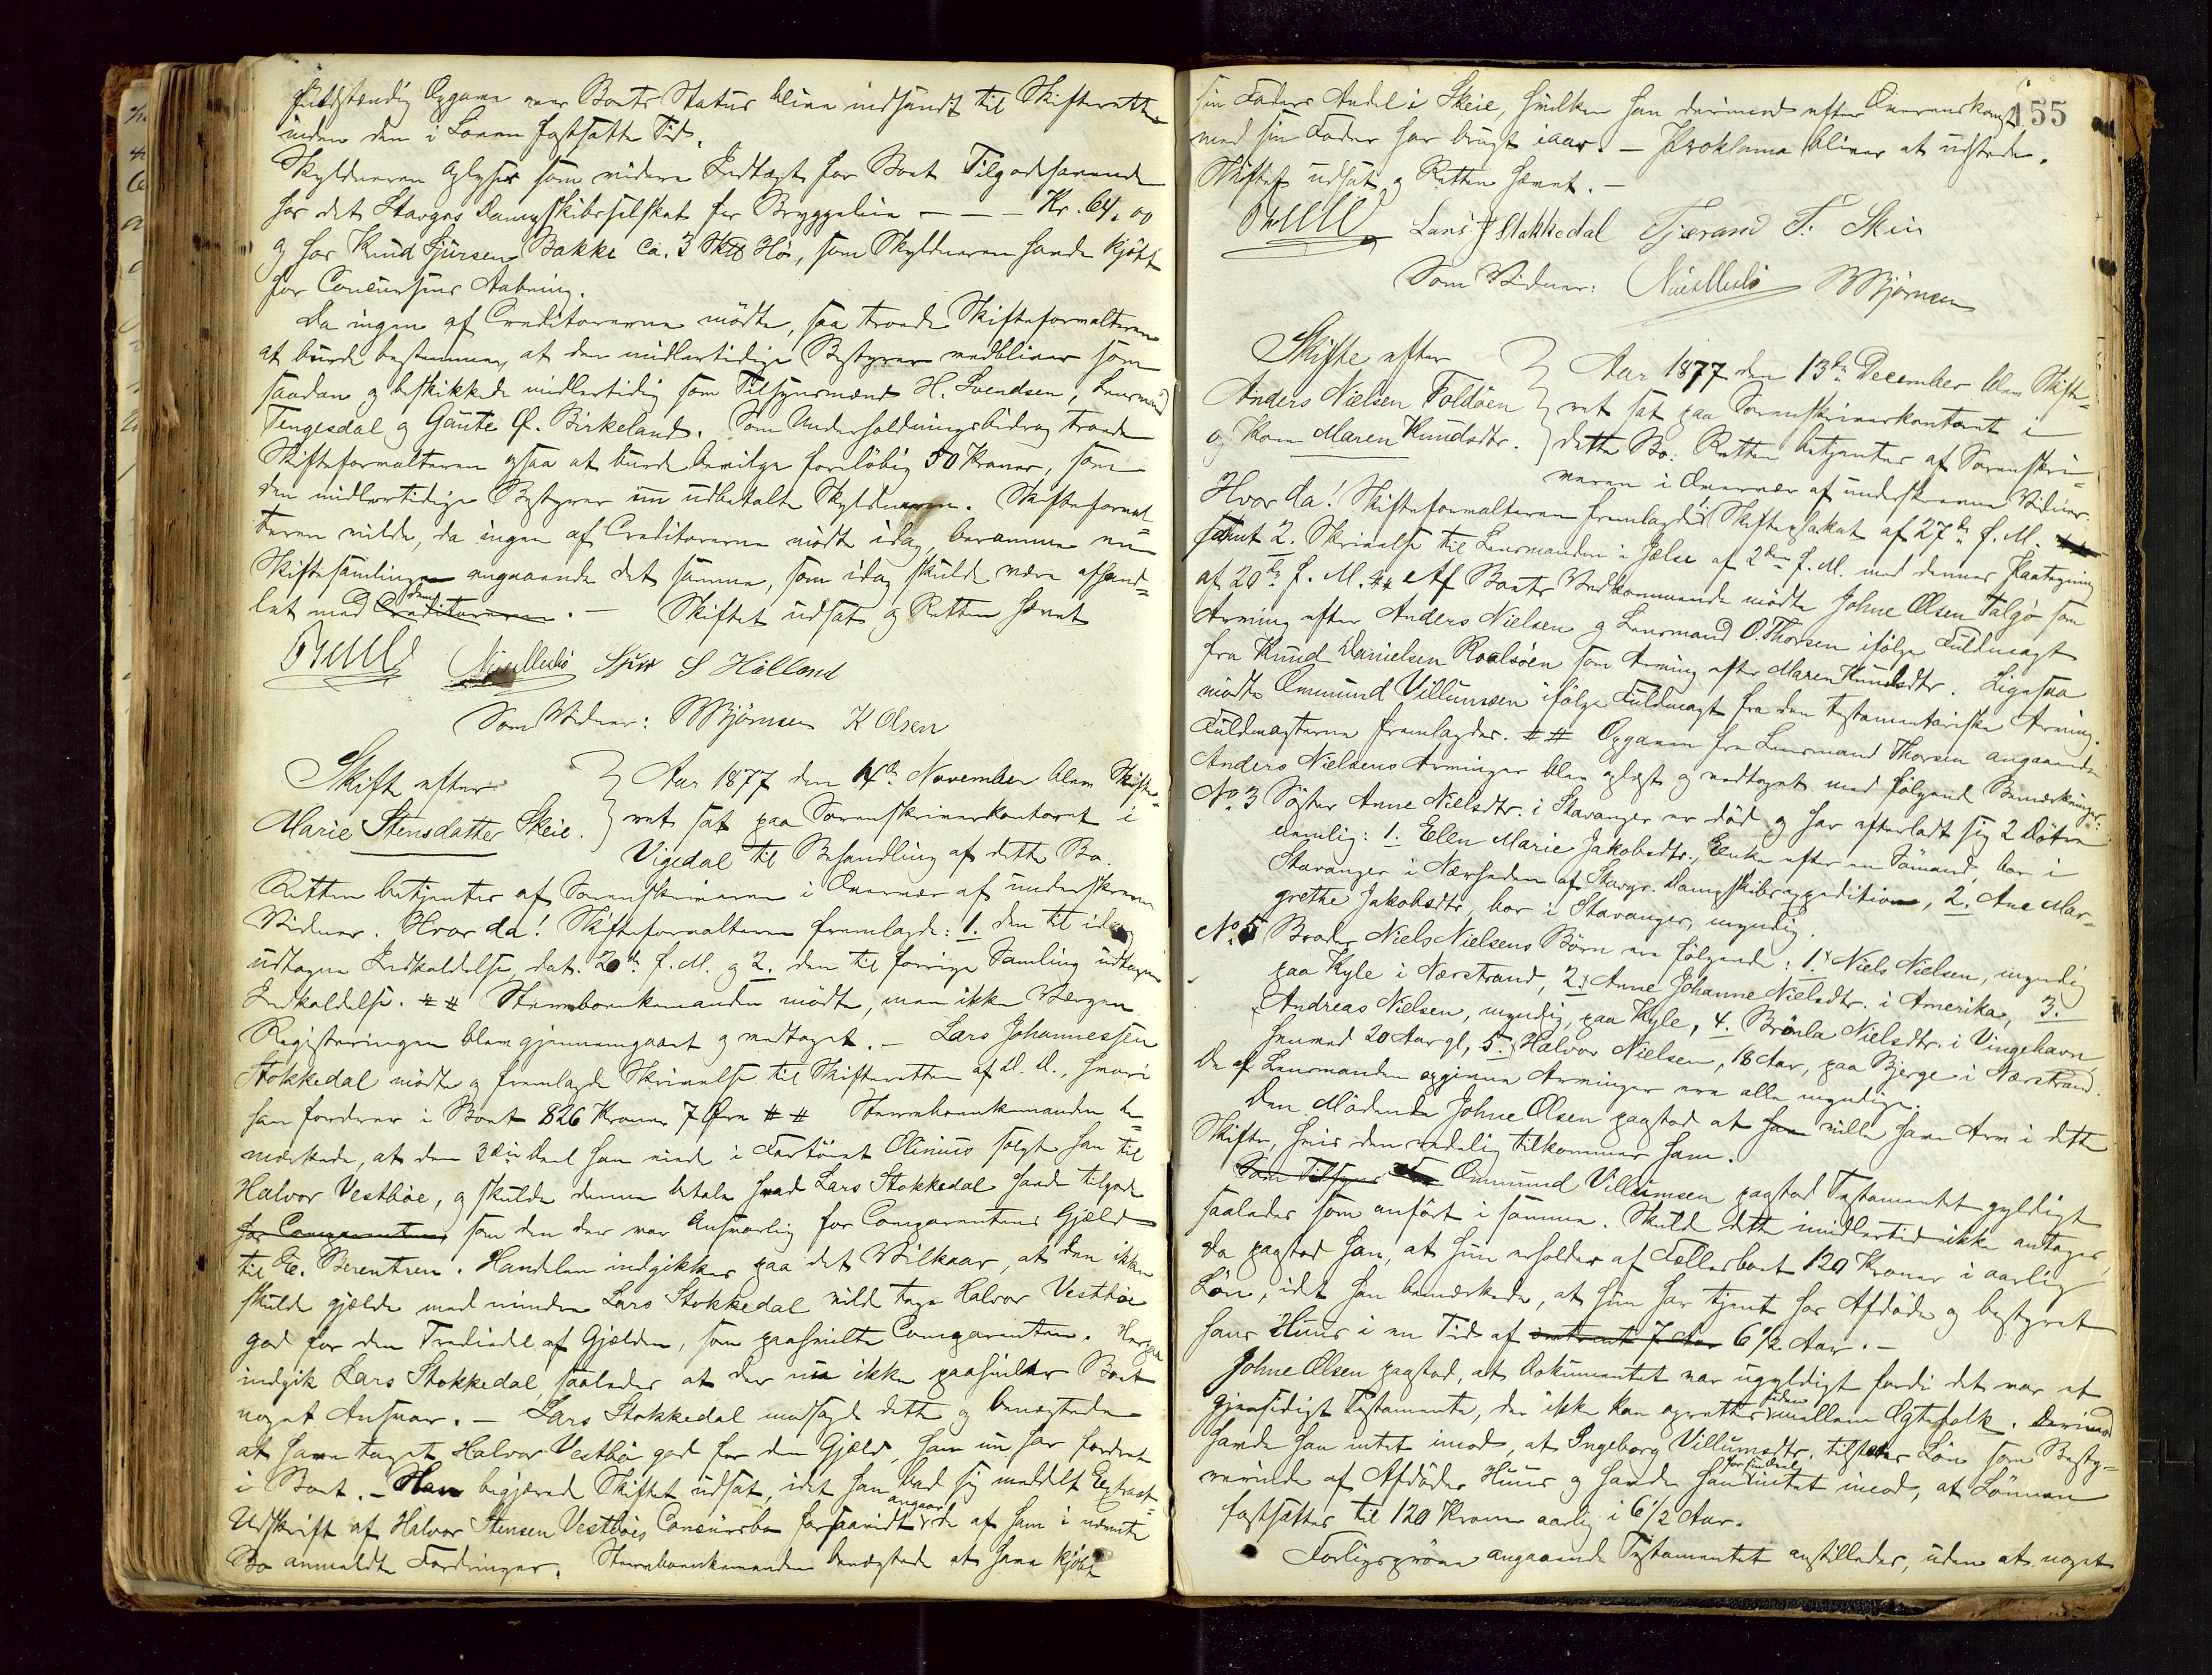 fuldstændig Opgave over Boets Status blive indsendt til Skifteretten
inden den i Loven fastsatte Tid.
Skyldneren oplyser som videre Indtægt for Boet Tilgodehavende
hos det Stavgrs Dampskibsselskab for Bryggeleie - - - Kr. 64,00
og hos Knud Sjursen Bakke ca. 3 Sk℔ Hö, som Skyldneren havde kjöbt
for Concursens Aabning.
Da ingen af Creditorerne mödte, saa troede Skifteforvalteren
at burde bestemme, at den midlertidige Bestyrer vedbliver som
saadan og beskikkede midlertidig som Tilsynsmænd H. Svendsen, Lensmand
Tengesdal og Gaute Ø. Birkeland. Som Underholdningsbidrag troede
Skifteforvalteren ogsaa at burde bevilge foreløbig 50 Kroner, som
den midlertidige Bestyrer nu udbetalte Skyldneren. Skifteforval-
teren vilde, da ingen af Creditorerne mödte idag, beramme en
Skiftesamling angaaende det samme, som idag skulde være afhand-
let med Creditorerne dem. — Skiftet udsat og Retten hævet
Sjur S Hølland
Som Vidner: MBjörnsen K Olsen
Skifte efter
Marie Stensdatter Skeie.
Aar 1877 den 14de November blev Skifte-
ret sat paa Sorenskriverkontoret i
Vigedal til Behandling af dette Bo.
Retten betjentes af Sorenskriveren i Overvær af underskrevne
Vidner. Hvor da! Skifteforvalteren fremlagde: 1. den til idag
udtagne Indkaldelse, dat. 20de f. M. og 2. den til forrige Samling udtagne
Indkaldelse. ⌗ ⌗ Stervboenkemanden mödte, men ikke Værgen
Registreringen blev gjennemgaaet og vedtaget. — Lars Johannessen
Stokkedal mödte og fremlagde Skrivelse til Skifteretten af D. D., hvori
han fordrer i Boet 826 Kroner 7 Øre ⌗ ⌗ Stervboenkemanden be-
mærkede, at den 3die Deel han eiede i Fartöiet Olinus solgte han til
Halvor Vestböe, og skulde denne betale hvad Lars Stokkedal havde tilgode
hos Comparenten, som den der var Ansvarlig for Comparentens Gjæld
til E. Berentsen. Handelen indgikkes paa det Vilkaar, at den ikke
skulde gjælde med mindre Lars Stokkedal vilde tage Halvor Vestböe
god for den Trediedel af Gjælden, som paahvilte Comparenten. Herpaa
indgik Lars Stokkedal, saaledes at der nu ikke paahviler Boet
noget Ansvar. — Lars Stokkedal modsagde dette og benægtede
at have taget Halvor Vestbö god for den Gjæld, han nu har fordret
i Boet. — Han begjærede Skiftet udsat, idet han bad sig meddelt Extract-
Udskrift af Halvor Stensen Vestböes Concursbo forsaavidt angaar de af ham i nævnte
Bo anmeldte Fordringer. Stervboenkemanden benægtede at have kjöbt
155
sin Faders Andel i Skeie, hvilken han derimod efter Overenskomst
med sin Fader har brugt iaar. — Proklama bliver at udstede.
Skiftet udsat og Retten hævet. —
Lars J Stokkedal Tjærand T. Skeie
Som Vidner: MBjörnsen
Skifte efter
Anders Nielsen Foldöen
og Kone Maren Knudsdtr.
Aar 1877 den 13de December blev Skifte-
ret sat paa Sorenskriverkontoret i
dette Bo. Retten betjentes af Sorenskri-
veren i Overvær af underskrevne Vidner.
Hvor da! Skifteforvalteren fremlagde 1 Skifteplakat af 27de f. M.
samt 2. Skrivelse til Lensmanden i Jælse af 2den f. M. med dennes Paategning
af 20de f. M. ⌗ Af Boets Vedkommende mödte Johne Olsen Talgö som
Arving efter Anders Nielsen og Lensmand O. Thorsen ifölge Fuldmagt
fra Knud Danielsen Roalsöen som Arving efter Maren Knudsdtr. Ligesaa
mödte Ommund Villumsen ifölge Fuldmagt fra den testamentariske Arving.
Fuldmagterne fremlagdes. ⌗ ⌗ Opgaven fra Lensmand Thorsen angaaende
Anders Nielsens Arvinger blev oplæst og vedtaget med fölgende Bemærkninger:
No 3 Söster Anne Nielsdtr. i Stavanger er död og har efterladt sig 2 Dötre
nemlig: 1. Ellen Marie Jakobsdtr., Enke efter en Sömand, bor i
Stavanger i Nærheden af Stavgr. Dampskibsexpedition, 2. Ane Mar-
grethe Jakobsdtr, bor i Stavanger, myndig.
No 5 Broder Niels Nielsens Börn ere fölgende: 1. Niels Nielsen, myndig
paa Kyle i Nærstrand, 2. Anne Johanne Nielsdtr. i Amerika, 3.
Andreas Nielsen, myndig, paa Kyle, 4. Brönla Nielsdtr. i Vingehavn,
henved 20 Aar gl, 5. Halvor Nielsen, 18 Aar, paa Bjerge i Nærstrand.
De af Lensmanden opgivne Arvinger ere alle myndige.
Den Mödende Johne Olsen paastod at han ville have Arv i dette
Skifte, hvis den redelig tilkommer ham.
Som Tilsyns Ommund Villumsen paastod Testamentet gyldigt
saaledes som anfört i samme. Skulde dette imidlertid ikke antages,
da paastod han, at hun erholder af Fællesboet 120 Kroner i aarlig
Lön, idet han bemærkede, at hun har tjent hos Afdöde og bestyret
hans Huus i en Tid af omtrent 7 Aar 6 1/2 Aar. —
Johne Olsen paastod, at Dokumentet var ugyldigt fordi det var et
gjensidigt Testamente, der ikke kan oprettes uden mellem Ægtefolk. Derimod
havde han intet imod, at Ingeborg Villumsdtr. tilstaaes Lön som Besty-
rerinde af Afdödes Huus og havde han for sin Deel intet imod, at Lönnen
fastsættes til 120 Kroner aarlig i 6 1/2 Aar.
Forligspröve angaaende Testamentet anstilledes, uden at noget